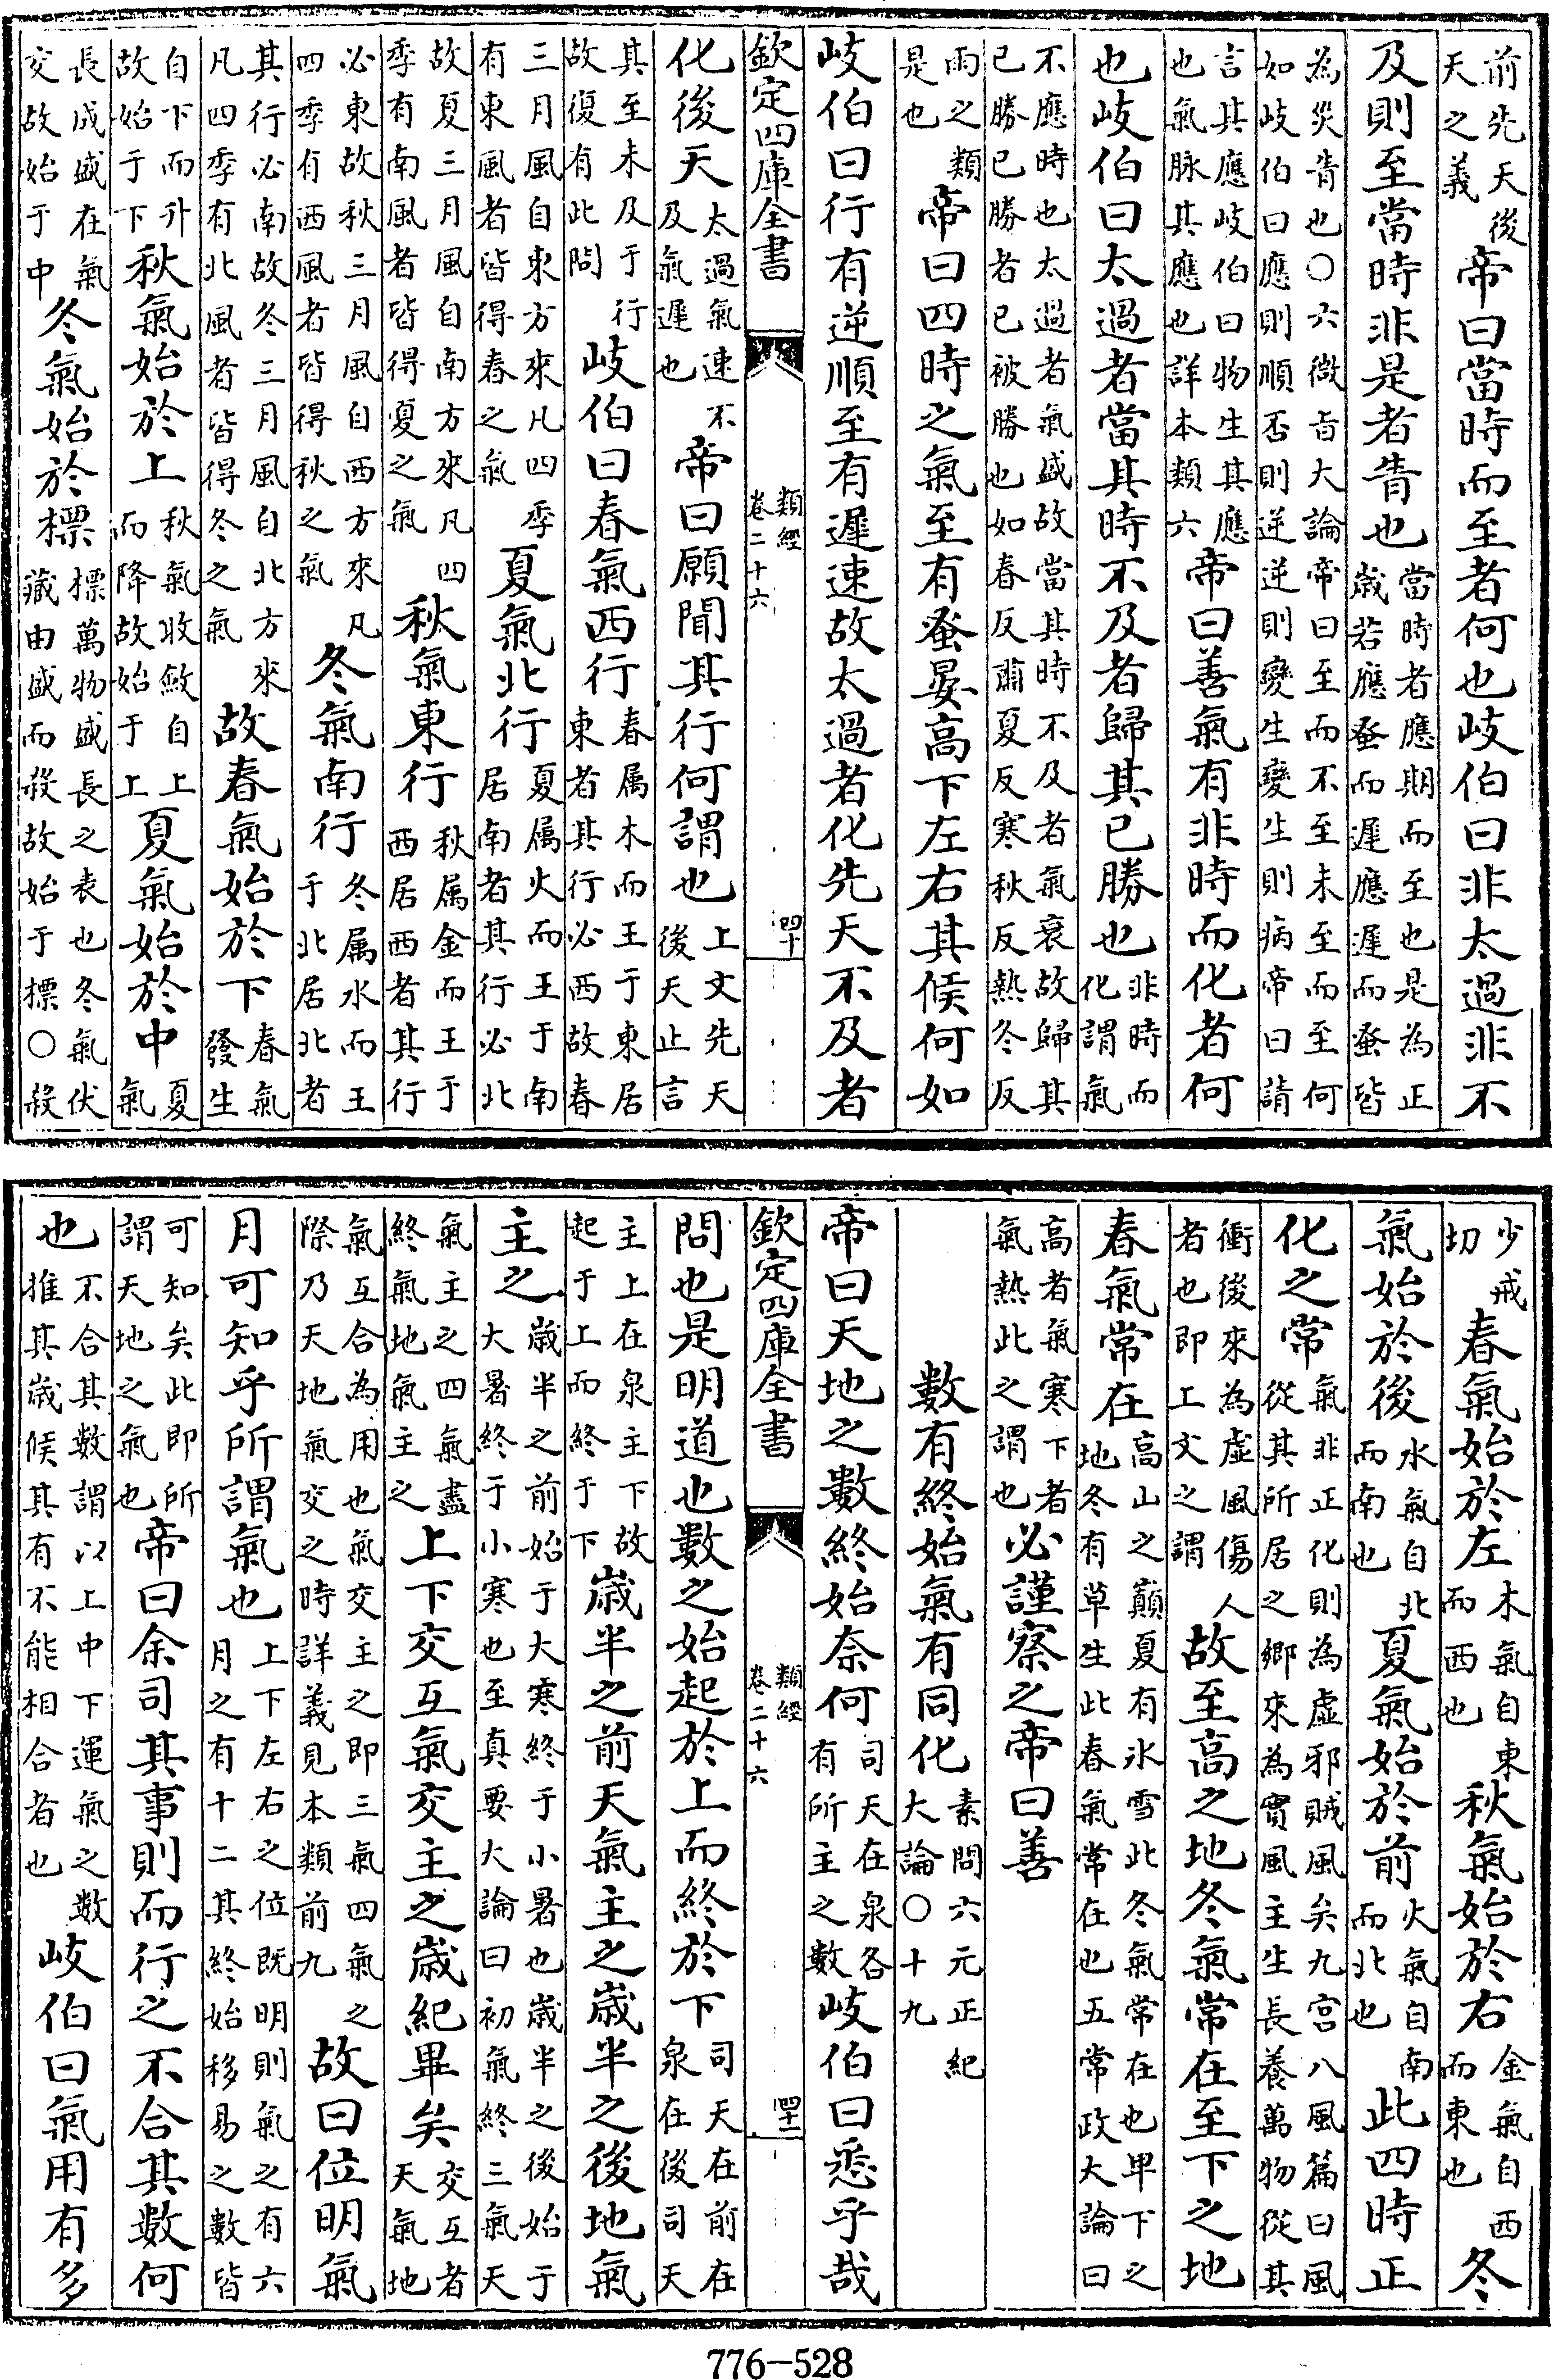 前先天後天之義帝曰當時而至者何也岐伯曰非太過非不
及則至當時非是者眚也當時者應期而至也是為正歲若應蚤而遲應遲而蚤皆
為災眚也○六微旨大論帝曰至而不至未至而至何如岐伯曰應則順否則逆逆則變生變生則病帝曰請
言其應岐伯曰物生其應也氣脉其應也詳本類六帝曰善氣有非時而化者何
也岐伯曰太過者當其時不及者歸其已勝也非時而化謂氣
不應時也太過者氣盛故當其時不及者氣衰故歸其已勝已勝者已被勝也如春反肅夏反寒秋反熱冬反
雨之類是也帝曰四時之氣至有蚤晏高下左右其候何如
岐伯曰行有逆順至有遲速故太過者化先天不及者
欽定四庫全書 類經 卷二十六 四十
化後天太過氣速不及氣遲也帝曰願聞其行何謂也上文先天後天止言
其至未及于行故復有此問岐伯曰春氣西行春属木而王于東居東者其行必西故春
三月風自東方來凡四季有東風者皆得春之氣夏氣北行夏属火而王于南居南者其行必北
故夏三月風自南方來凡四季有南風者皆得夏之氣秋氣東行秋属金而王于西居西者其行
必東故秋三月風自西方來凡四季有西風者皆得秋之氣冬氣南行冬属水而王于北居北者
其行必南故冬三月風自北方來凡四季有北風者皆得冬之氣故春氣始於下春氣發生
自下而升故始于下秋氣始於上秋氣收斂自上而降故始于上夏氣始於中夏氣
長成盛在氣交故始于中冬氣始於標標萬物盛長之表也冬氣伏藏由盛而殺故始于標○殺
少戒切春氣始於左木氣自東而西也秋氣始於右金氣自西而東也冬
氣始於後水氣自北而南也夏氣始於前火氣自南而北也此四時正
化之常氣非正化則為虛邪賊風矣九宫八風篇曰風從其所居之鄉來為實風主生長養萬物從其
衝後來為虛風傷人者也即上文之謂故至高之地冬氣常在至下之地
春氣常在高山之巔夏有氷雪此冬氣常在也卑下之地冬有草生此春氣常在也五常政大論曰
高者氣寒下者氣熱此之謂也必謹察之帝曰善
數有終始氣有同化素問六元正紀大論○十九
帝曰天地之數終始奈何司天在泉各有所主之數岐伯曰悉乎哉
欽定四庫全書 類經 卷二十六 四十一
問也是明道也數之始起於上而終於下司天在前在泉在後司天
主上在泉主下故起于上而終于下歲半之前天氣主之歲半之後地氣
主之歲半之前始于大寒終于小暑也歲半之後始于大暑終于小寒也至真要大論曰初氣終三氣天
氣主之四氣盡終氣地氣主之上下交互氣交主之歲紀畢矣交互者天氣地
氣互合為用也氣交主之即三氣四氣之際乃天地氣交之時詳義見本類前九故曰位明氣
月可知乎所謂氣也上下左右之位既明則氣之有六月之有十二其終始移易之數皆
可知矣此即所謂天地之氣也帝曰余司其事則而行之不合其數何
也不合其數謂以上中下運氣之數推其歲候其有不能相合者也岐伯曰氣用有多
776-528